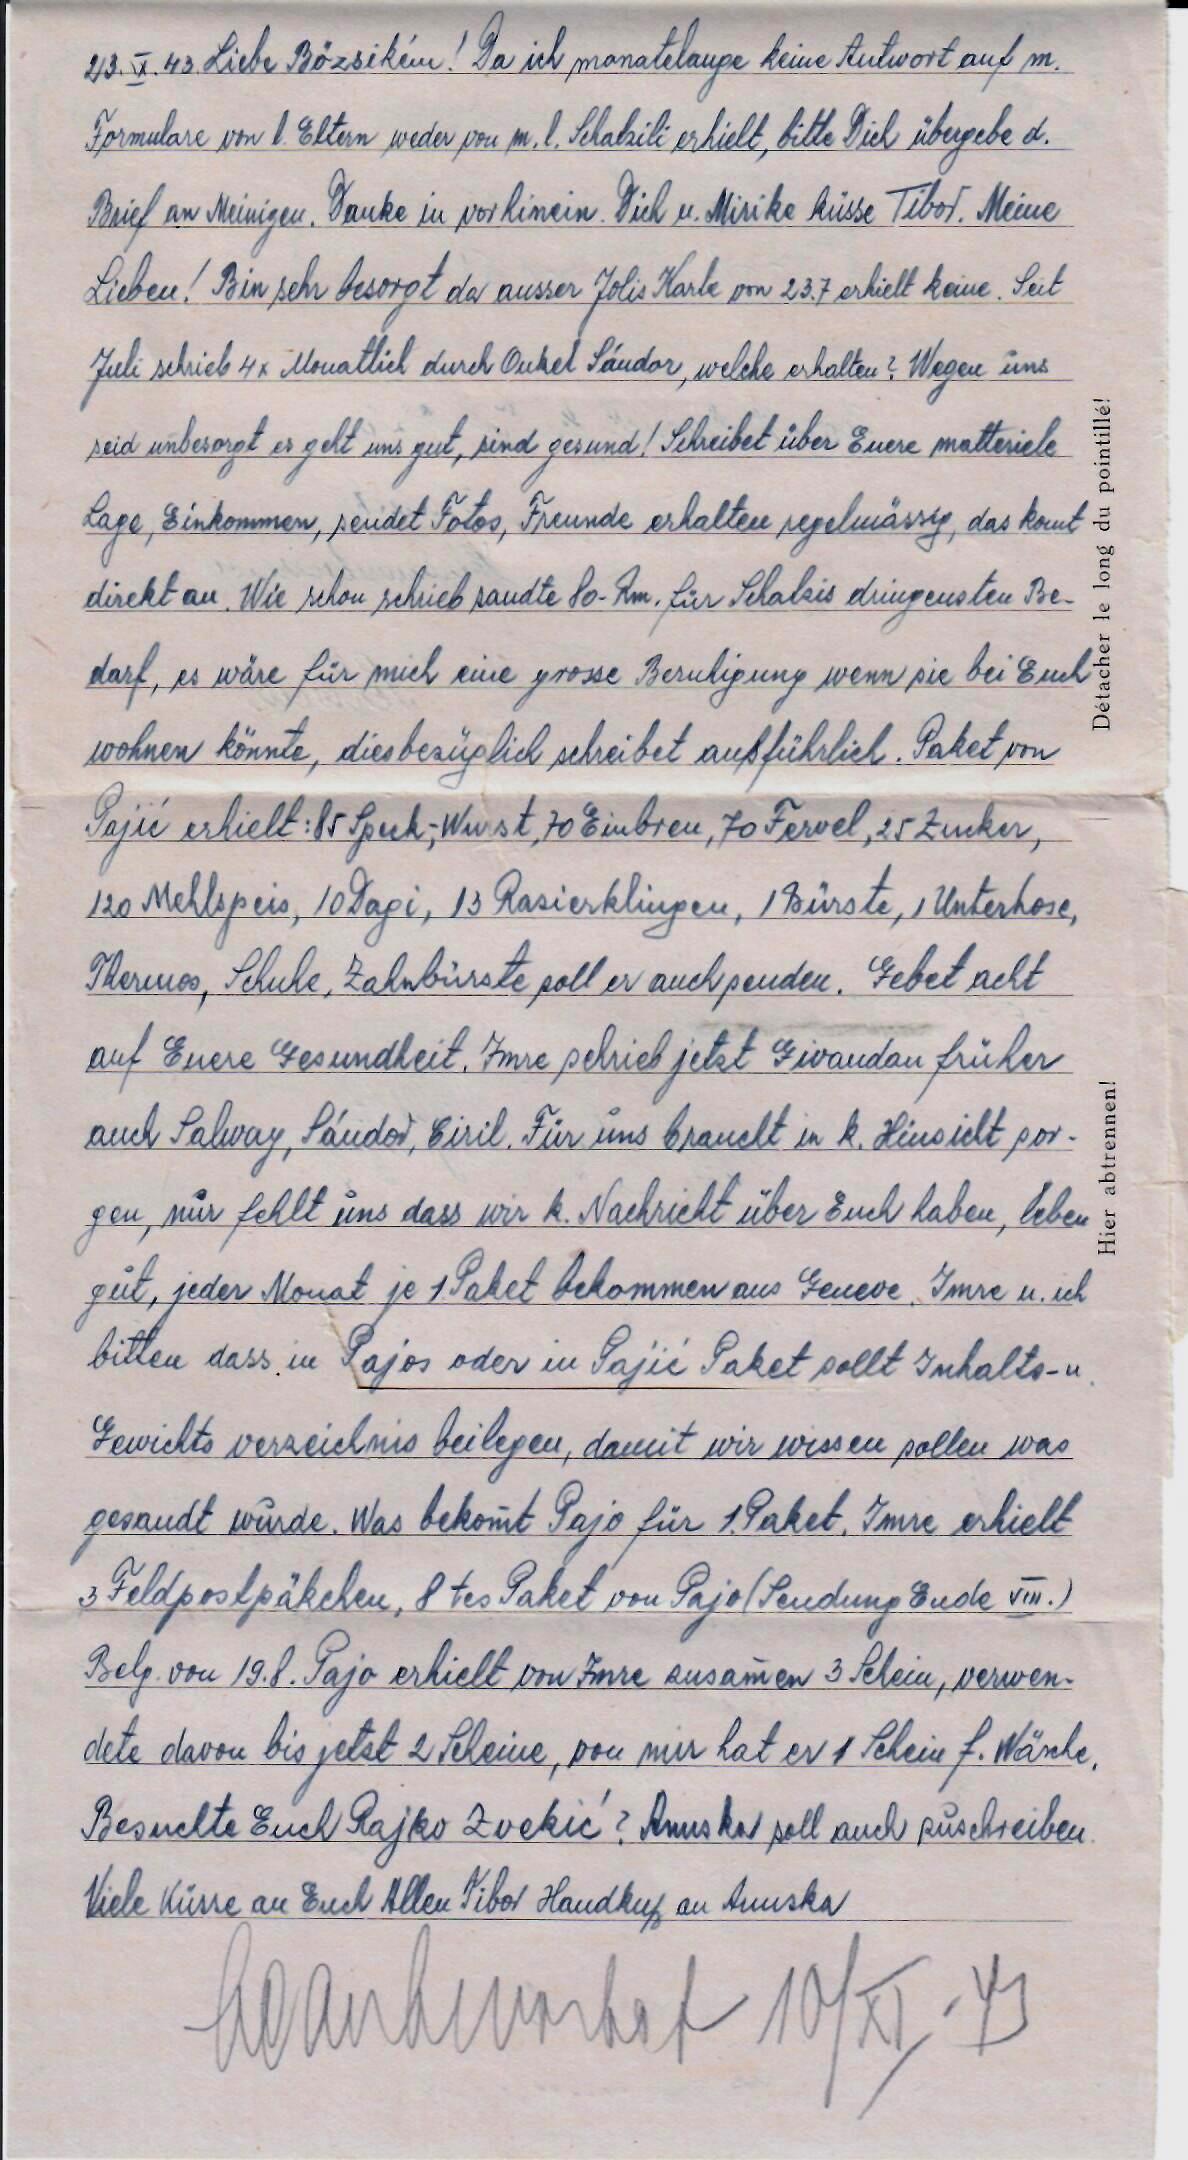 23.X.43. Liebe Bözsikém! Da ich monatelange keine Antwort auf m.
Formulare von l. Eltern weder von m. l. Schatzili erhielt, bitte Dich übergebe d.
Brief an Meinigen. Danke in vorhinein. Dich u. Mirike küsse Tibor. Meine
Lieben! Bin sehr besorgt da ausser Jolis Karte von 23.7 erhielt keine. Seit
Juli schrieb 4x Monatlich durch Onkel Sándor, welche erhalten? Wegen uns
seid unbesorgt es geht uns gut, sind gesund! Schreibet über Euere matteriele
Lage, Einkommen, sendet Fotos, Freunde erhalten regelmässig, das komt
direkt an. Wie schon schrieb sandte 80.- Rm. für Schatzis dringensten Be-
darf, es wäre für mich eine grosse Beruhigung wenn sie bei Euch
wohnen könnte, diesbezüglich schreibet ausführlich. Paket von
Pajić erhielt: 85 Speck,-Wurst, 70 Einbren, 70 Fervel, 25 Zucker,
120 Mehlspeis, 10 Dagi, 13 Rasierklingen, 1 Bürste, 1 Unterhose,
Thermos, Schuhe, Zahnbürste soll er auch senden. Gebet acht
auf Euere Gesundheit. Imre schrieb jetzt Givaudan früher
auch Salway, Sándor, Ciril. Für uns braucht in k. Hinsicht sor-
gen, nur fehlt uns dass wir k. Nachricht über Euch haben, leben
gut, jeder Monat je 1 Paket bekommen aus Geneve. Imre u. ich
bitten dass in Pajos oder in Pajić Paket sollt Inhalts-u.
Gewichts verzeichnis beilegen, damit wir wissen sollen was
gesandt wurde. Was bekom̄t Pajo für 1 Paket. Imre erhielt
3 Feldpostpäkchen, 8 tes Paket von Pajo (Sendung Ende VIII.)
Belg. von 19.8. Pajo erhielt von Imre zusam̄en 3 Schein, verwen-
dete davon bis jetzt 2 Scheine, von mir hat er 1 Schein f. Wäsche.
Besuchte Euch Rajko Zvekić? Anuska soll auch zuschreiben.
Viele Küsse an Euch Allen Tibor Handkuß an Anuska
10/XI.-43
Détacher le long du pointillé!
Hier abtrennen!